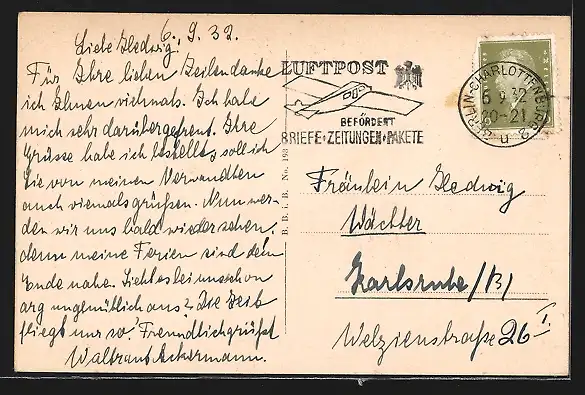 6. 9. 32.
Liebe Hedwig!
Für Ihre lieben Zeilen danke
ich Ihnen vielmals. Ich habe
mich sehr darüber gefreut. Ihre
Grüsse habe ich bestellt, soll ich
Sie von meinen Verwandten
auch vielmals grüßen. Nun wer-
den wir uns bald wiedersehen,
denn meine Ferien sind dem
Ende nahe. Sieht es bei uns schon
arg ungemütlich aus? Die Zeit
fliegt nur so. Freundlich grüßt
Waltraut Ackermann.
B. B. i. B. No. 198
LUFTPOST
BEFÖRDERT
BRIEFE·ZEITUNGEN·PAKETE
BERLIN-CHARLOTTENBURG 2
6 9 32
20-21
n
Fräulein Hedwig
Wächter
Karlsruhe/(B)
Welzienstraße 26 I